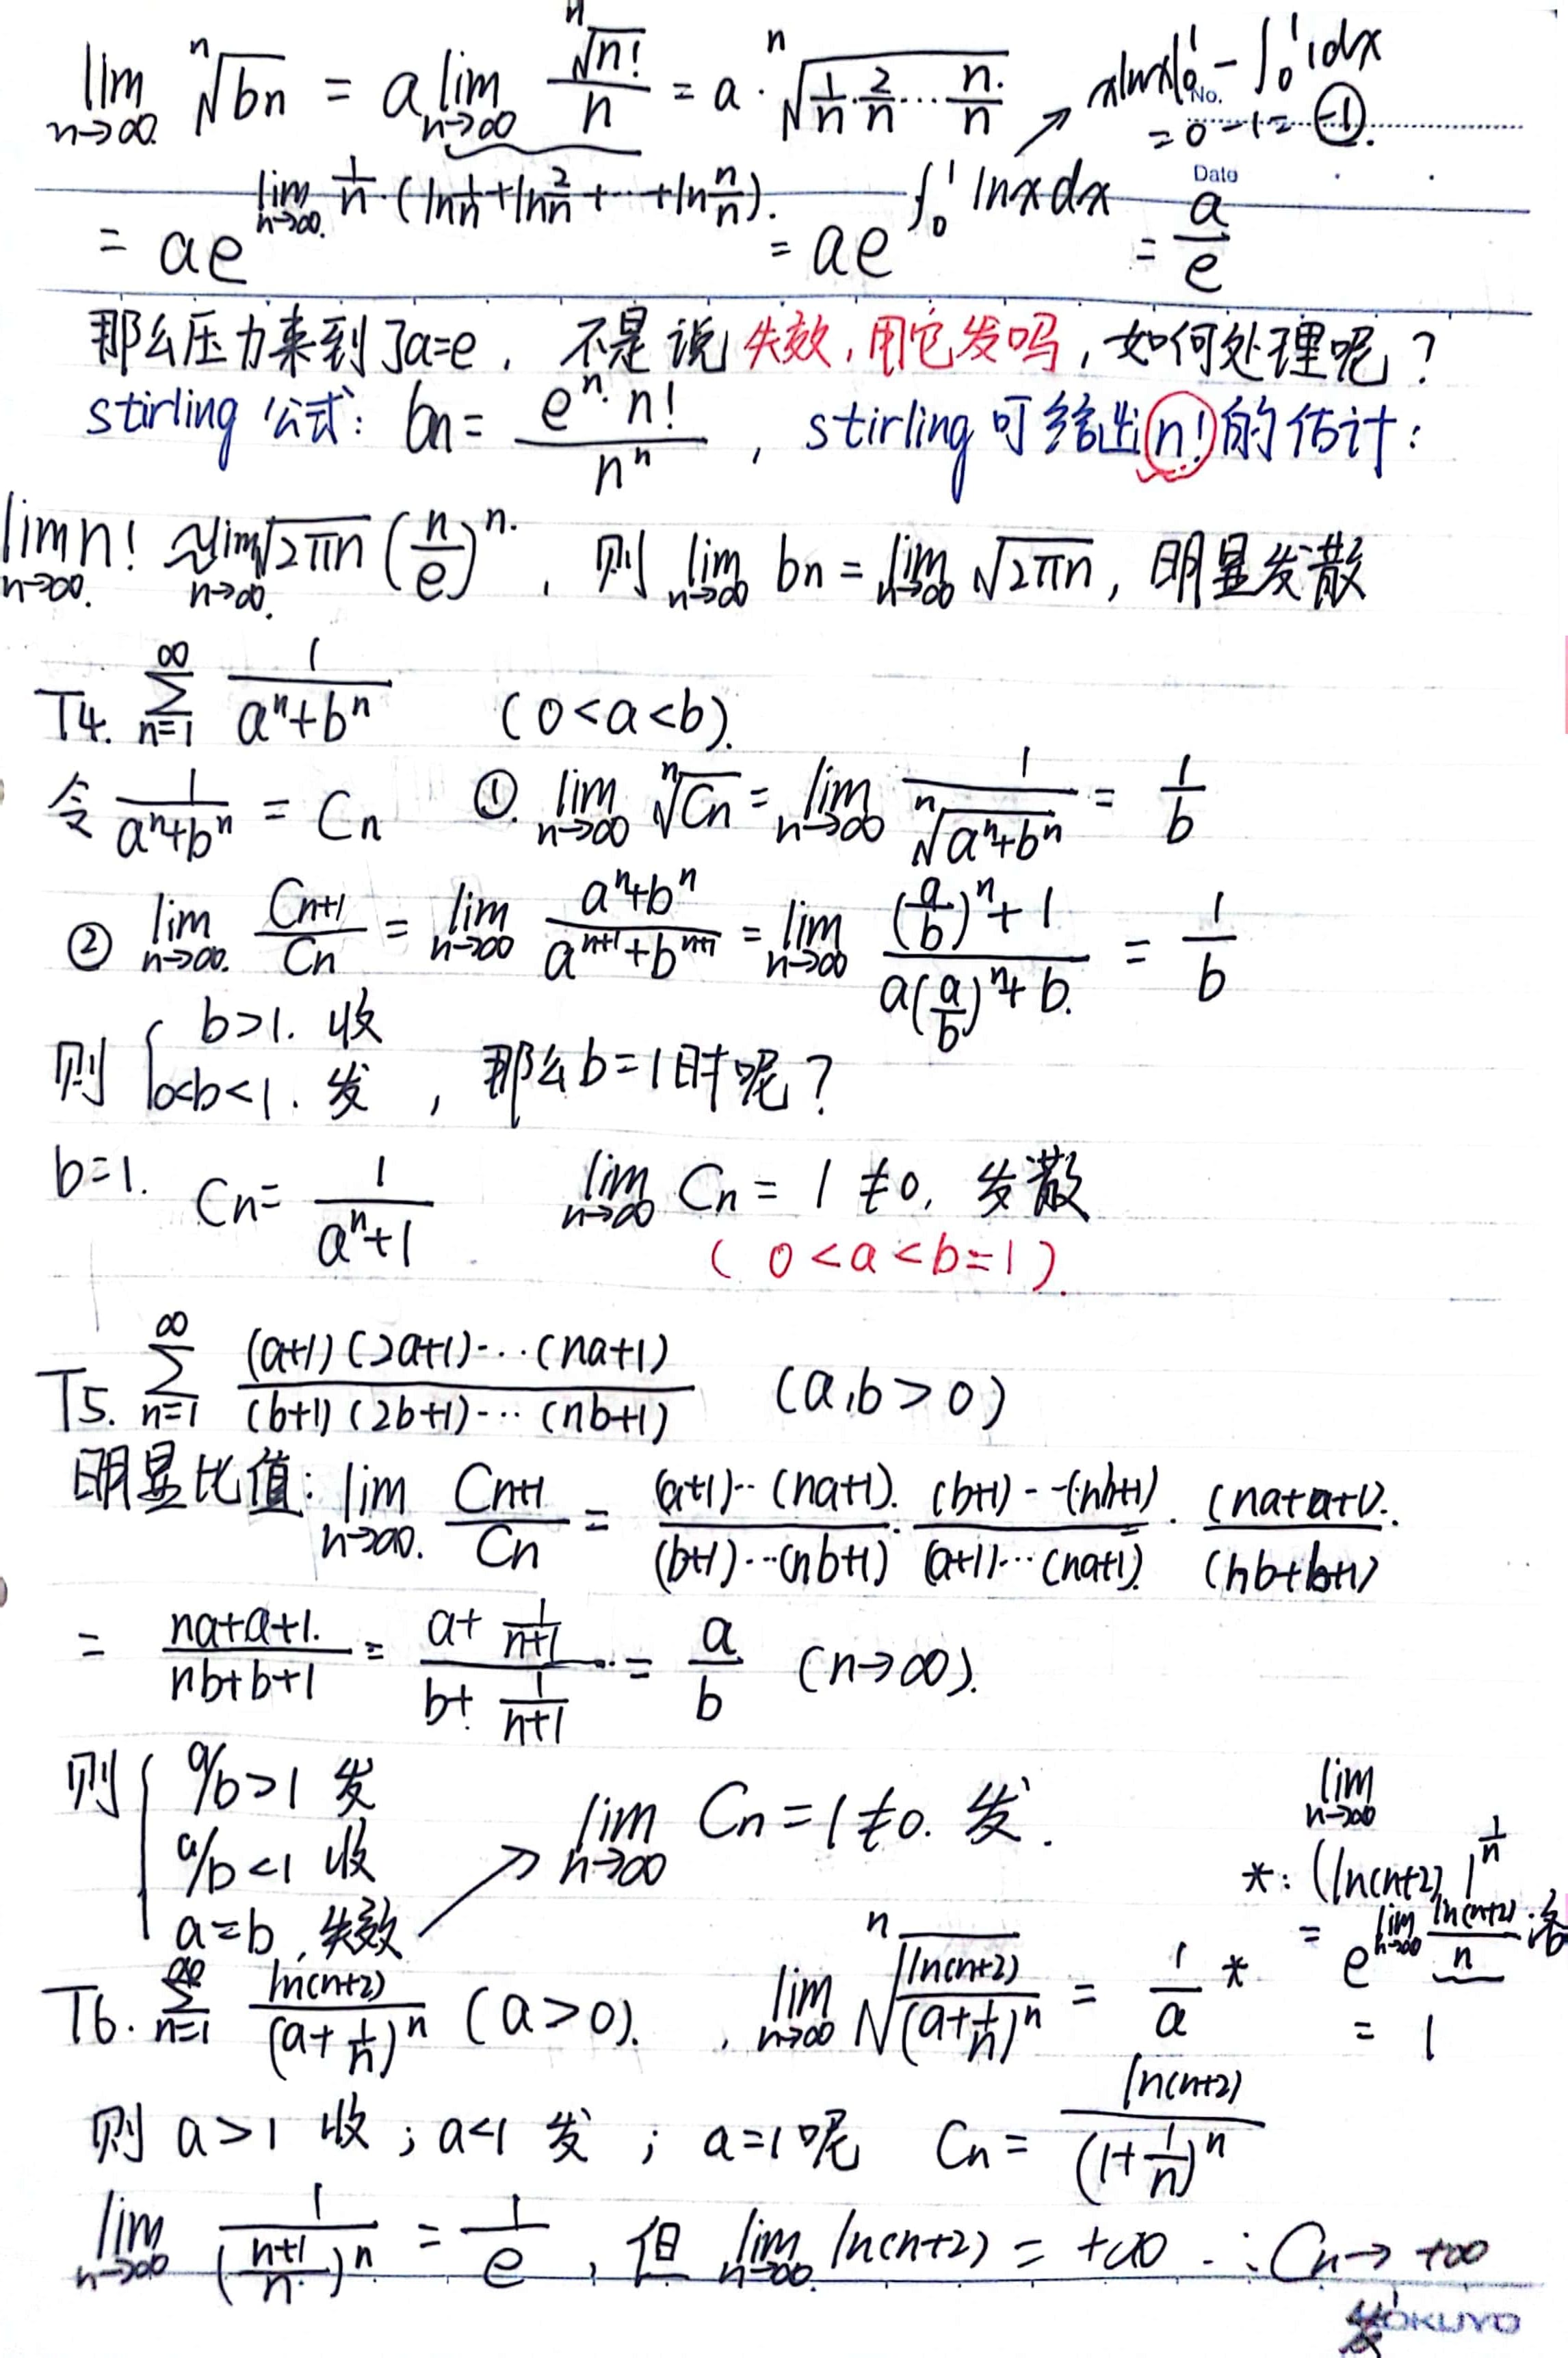 lim_{n→∞} ⁿ√bn = a lim_{n→∞} ⁿ√n! / n = a · ⁿ√(1/n · 2/n ⋯ n/n) ↗ xlnx|₀¹ - ∫₀¹ 1dx
No. = 0 - 1 = -1.
Date
= ae^{lim_{n→∞} 1/n · (ln 1/n + ln 2/n + ⋯ + ln n/n)} = ae^{∫₀¹ lnx dx} = a/e
那么压力来到了a=e, 不是说失效,用它发吗,如何处理呢?
stirling 公式: bn = eⁿ · n! / nⁿ , stirling 可给出 n! 的估计:
lim_{n→∞} n! ≈ lim_{n→∞} √2πn (n/e)ⁿ , 则 lim_{n→∞} bn = lim_{n→∞} √2πn, 明显发散
T4. ∑_{n=1}^{∞} 1/(aⁿ+bⁿ) (0<a<b).
令 1/(aⁿ+bⁿ) = Cn ①. lim_{n→∞} ⁿ√Cn = lim_{n→∞} 1/ⁿ√(aⁿ+bⁿ) = 1/b
② lim_{n→∞} Cn+1/Cn = lim_{n→∞} (aⁿ+bⁿ)/(aⁿ⁺¹+bⁿ⁺¹) = lim_{n→∞} ((a/b)ⁿ+1)/(a(a/b)ⁿ+b) = 1/b
则 { b>1. 收
0<b<1. 发 , 那么b=1时呢?
b=1. Cn = 1/(aⁿ+1) lim_{n→∞} Cn = 1 ≠ 0, 发散
(0<a<b=1).
T5. ∑_{n=1}^{∞} (a+1)(2a+1)⋯(na+1) / (b+1)(2b+1)⋯(nb+1) (a,b>0)
明显比值: lim_{n→∞} Cn+1/Cn = (a+1)⋯(na+1)/(b+1)⋯(nb+1) · (b+1)⋯(nb+1)/(a+1)⋯(na+1) · (na+a+1)/(nb+b+1)
= (na+a+1)/(nb+b+1) = (a+1/(n+1))/(b+1/(n+1)) = a/b (n→∞).
则 { a/b>1 发
a/b<1 收
a=b, 失效 ↗ lim_{n→∞} Cn = 1 ≠ 0. 发.
lim_{n→∞}
*: (ln(n+2))^{1/n}
= e^{lim_{n→∞} ln(n+2)/n} 洛
= 1
T6. ∑_{n=1}^{∞} ln(n+2)/(a+1/n)ⁿ (a>0). , lim_{n→∞} ⁿ√(ln(n+2)/(a+1/n)ⁿ) = 1/a *
则 a>1 收; a<1 发; a=1呢 Cn = ln(n+2)/(1+1/n)ⁿ
lim_{n→∞} 1/((n+1)/n)ⁿ = 1/e , 但 lim_{n→∞} ln(n+2) = +∞ ∴ Cn → +∞
发
KOKUYO